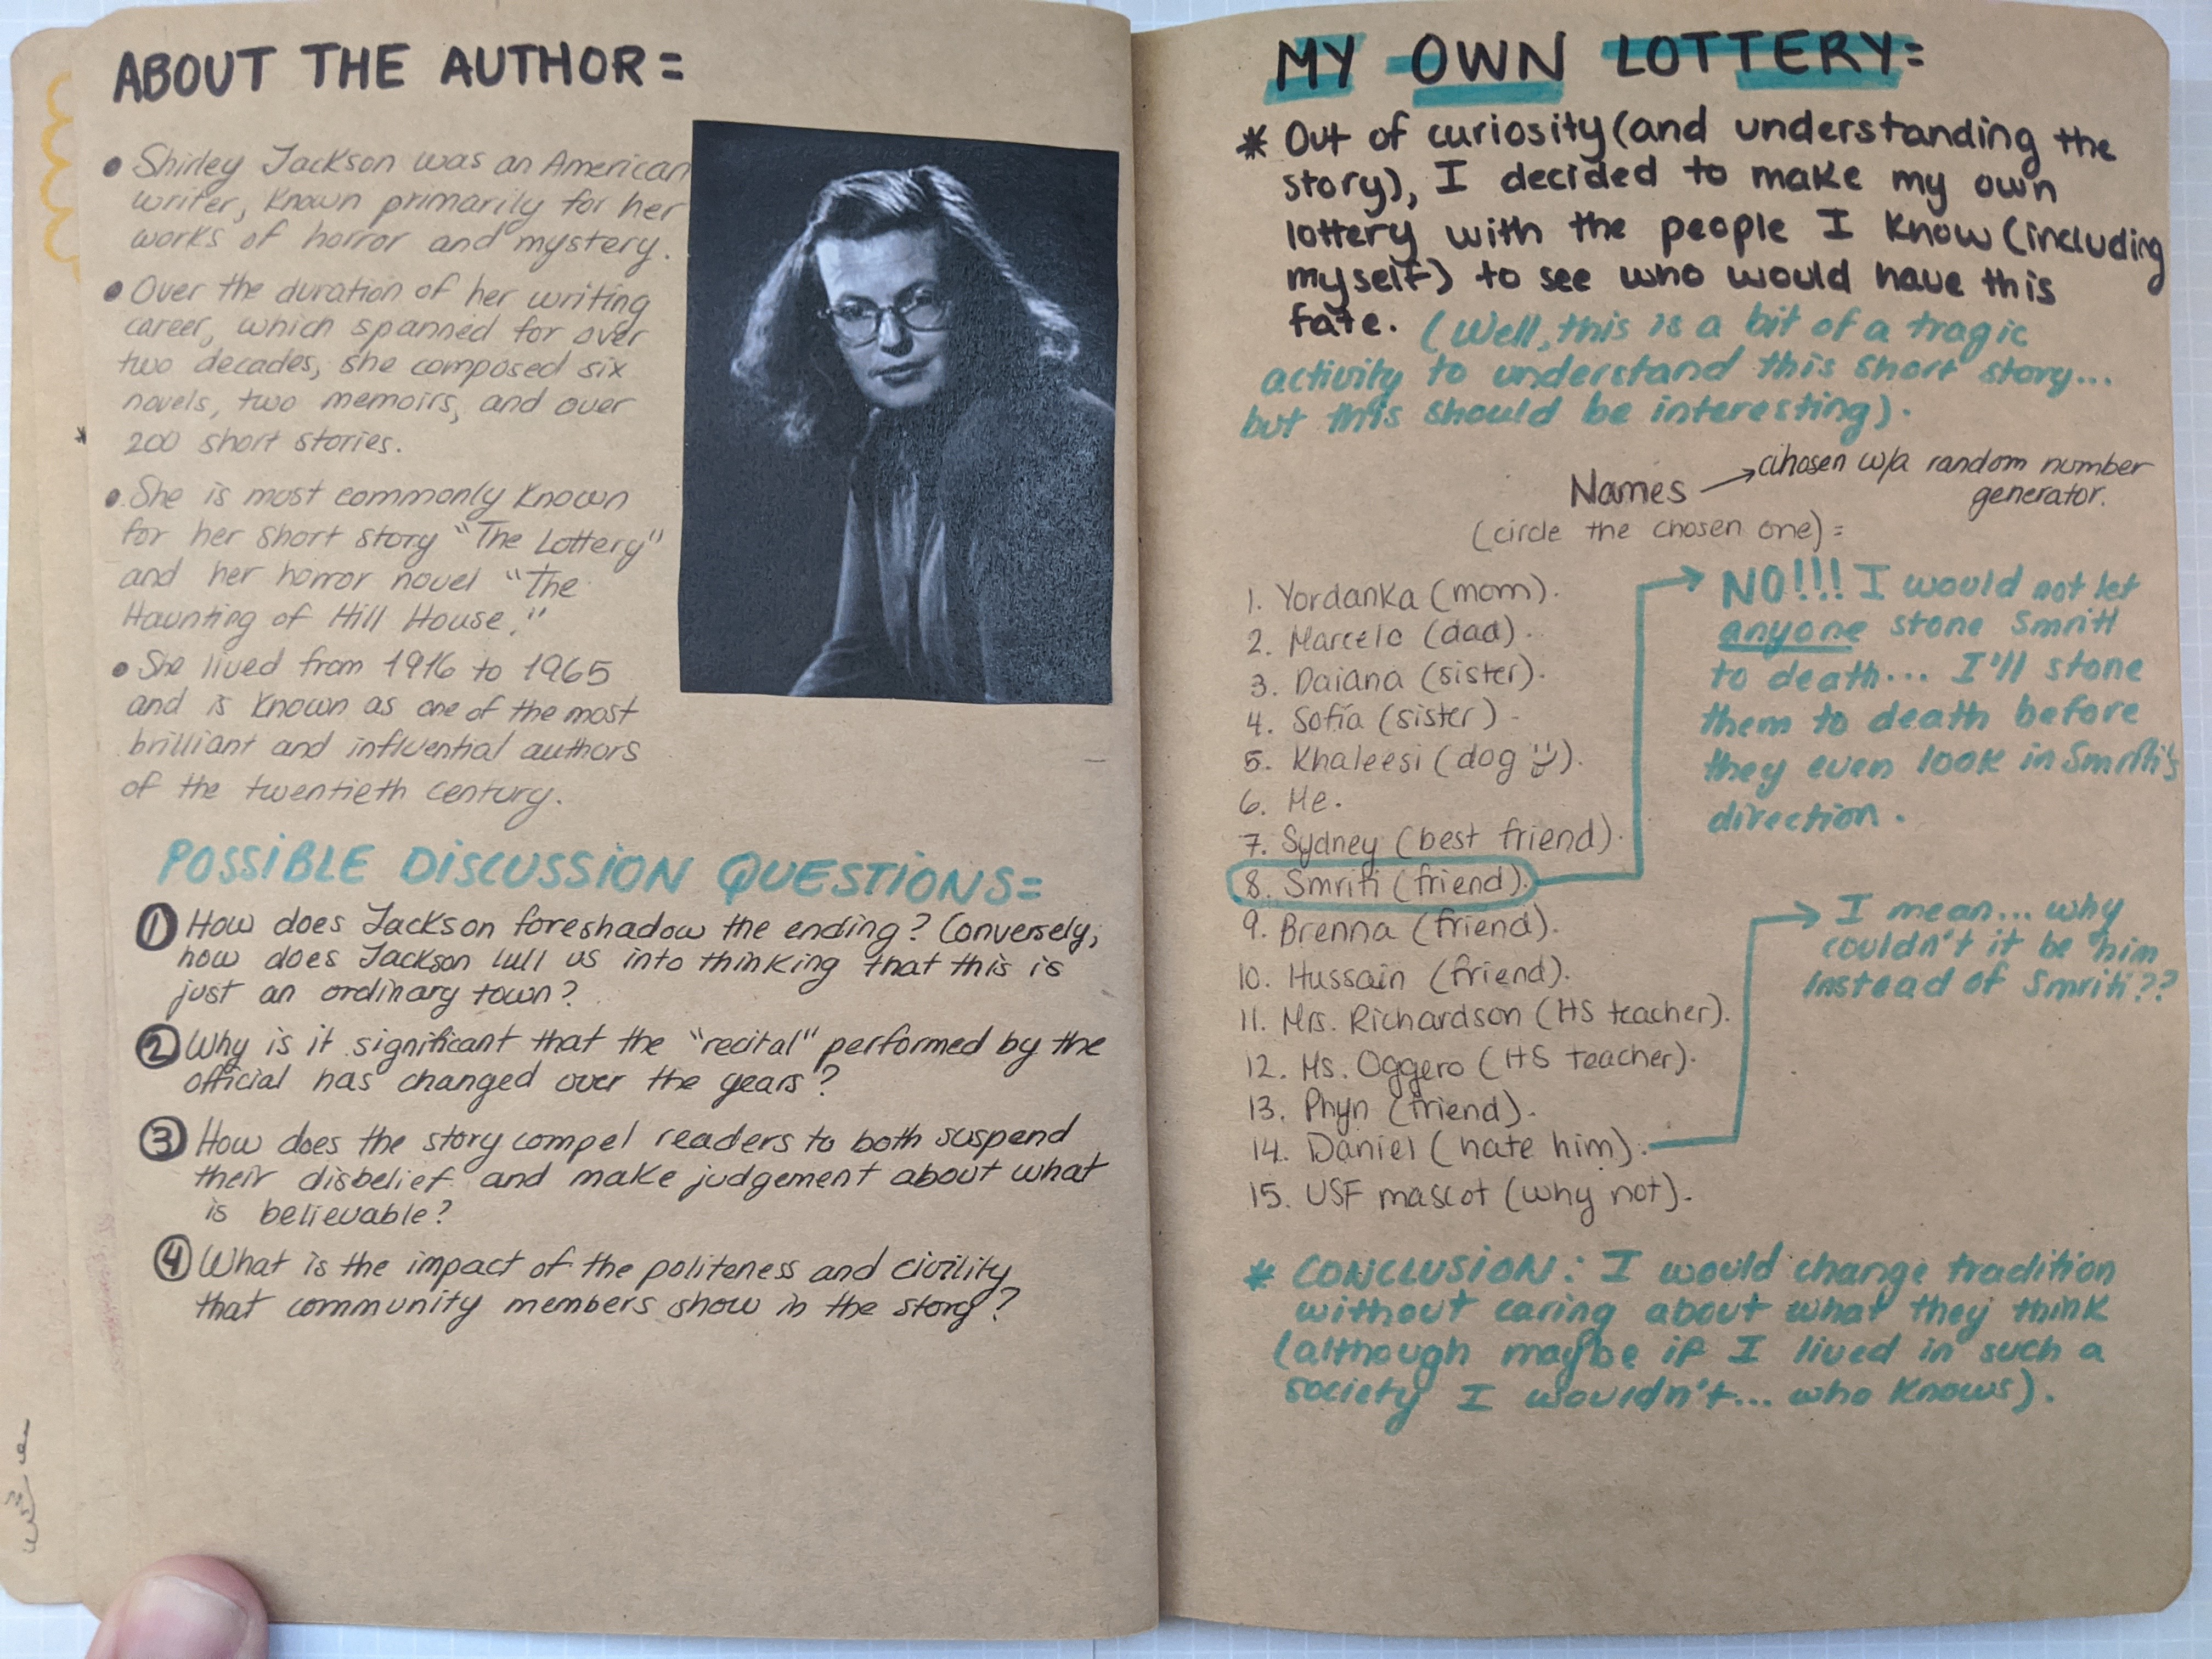 ABOUT THE AUTHOR=
• Shirley Jackson was an American
writer, known primarily for her
works of horror and mystery.
• Over the duration of her writing
career, which spanned for over
two decades, she composed six
novels, two memoirs, and over
200 short stories.
• She is most commonly known
for her short story "The Lottery"
and her horror novel "The
Haunting of Hill House."
• She lived from 1916 to 1965
and is known as one of the most
brilliant and influential authors
of the twentieth century.
POSSIBLE DISCUSSION QUESTIONS=
1 How does Jackson foreshadow the ending? Conversely,
how does Jackson lull us into thinking that this is
just an ordinary town?
2 Why is it significant that the "recital" performed by the
official has changed over the years?
3 How does the story compel readers to both suspend
their disbelief and make judgement about what
is believable?
4 What is the impact of the politeness and civility
that community members show in the story?
MY OWN LOTTERY=
* Out of curiosity (and understanding the
story), I decided to make my own
lottery with the people I know (including
myself) to see who would have this
fate. (Well, this is a bit of a tragic
activity to understand this short story...
but this should be interesting).
Names → chosen w/a random number
generator.
(circle the chosen one)=
1. Yordanka (mom).
2. Marcelo (dad).
3. Daiana (sister).
4. Sofía (sister).
5. Khaleesi (dog).
6. Me.
7. Sydney (best friend).
8. Smriti (friend).
9. Brenna (friend).
10. Hussain (friend).
11. Mrs. Richardson (HS teacher).
12. Ms. Oggero (HS teacher).
13. Phyn (friend).
14. Daniel (hate him).
15. USF mascot (why not).
NO!!! I would not let
anyone stone Smriti
to death... I'll stone
them to death before
they even look in Smriti's
direction.
I mean... why
couldn't it be him
instead of Smriti??
* CONCLUSION: I would change tradition
without caring about what they think
(although maybe if I lived in such a
society I wouldn't... who knows).